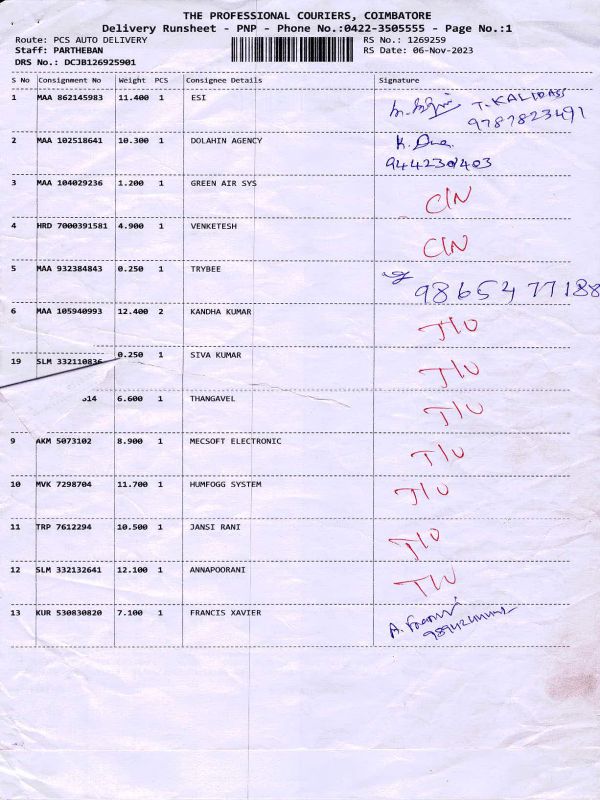 THE PROFESSIONAL COURIERS, COIMBATORE
Delivery Runsheet - PNP - Phone No.:0422-3505555 - Page No.:1
Route: PCS AUTO DELIVERY RS No.: 1269259
Staff: PARTHEBAN RS Date: 06-Nov-2023
DRS No.: DCJB126925901
S No Consignment No Weight PCS Consignee Details Signature
1 MAA 862145983 11.400 1 ESI T. KALIDASS
9787823491
2 MAA 102518641 10.300 1 DOLAHIN AGENCY
3 MAA 104029236 1.200 1 GREEN AIR SYS C/N
4 HRD 7000391581 4.900 1 VENKETESH C/N
5 MAA 932384843 0.250 1 TRYBEE
9865477188
6 MAA 105940993 12.400 2 KANDHA KUMAR T/U
19 SLM 332110836 0.250 1 SIVA KUMAR T/U
6.600 1 THANGAVEL T/U
9 AKM 5073102 8.900 1 MECSOFT ELECTRONIC T/U
10 MVK 7298704 11.700 1 HUMFOGG SYSTEM T/U
11 TRP 7612294 10.500 1 JANSI RANI T/U
12 SLM 332132641 12.100 1 ANNAPOORANI T/U
13 KUR 530830820 7.100 1 FRANCIS XAVIER